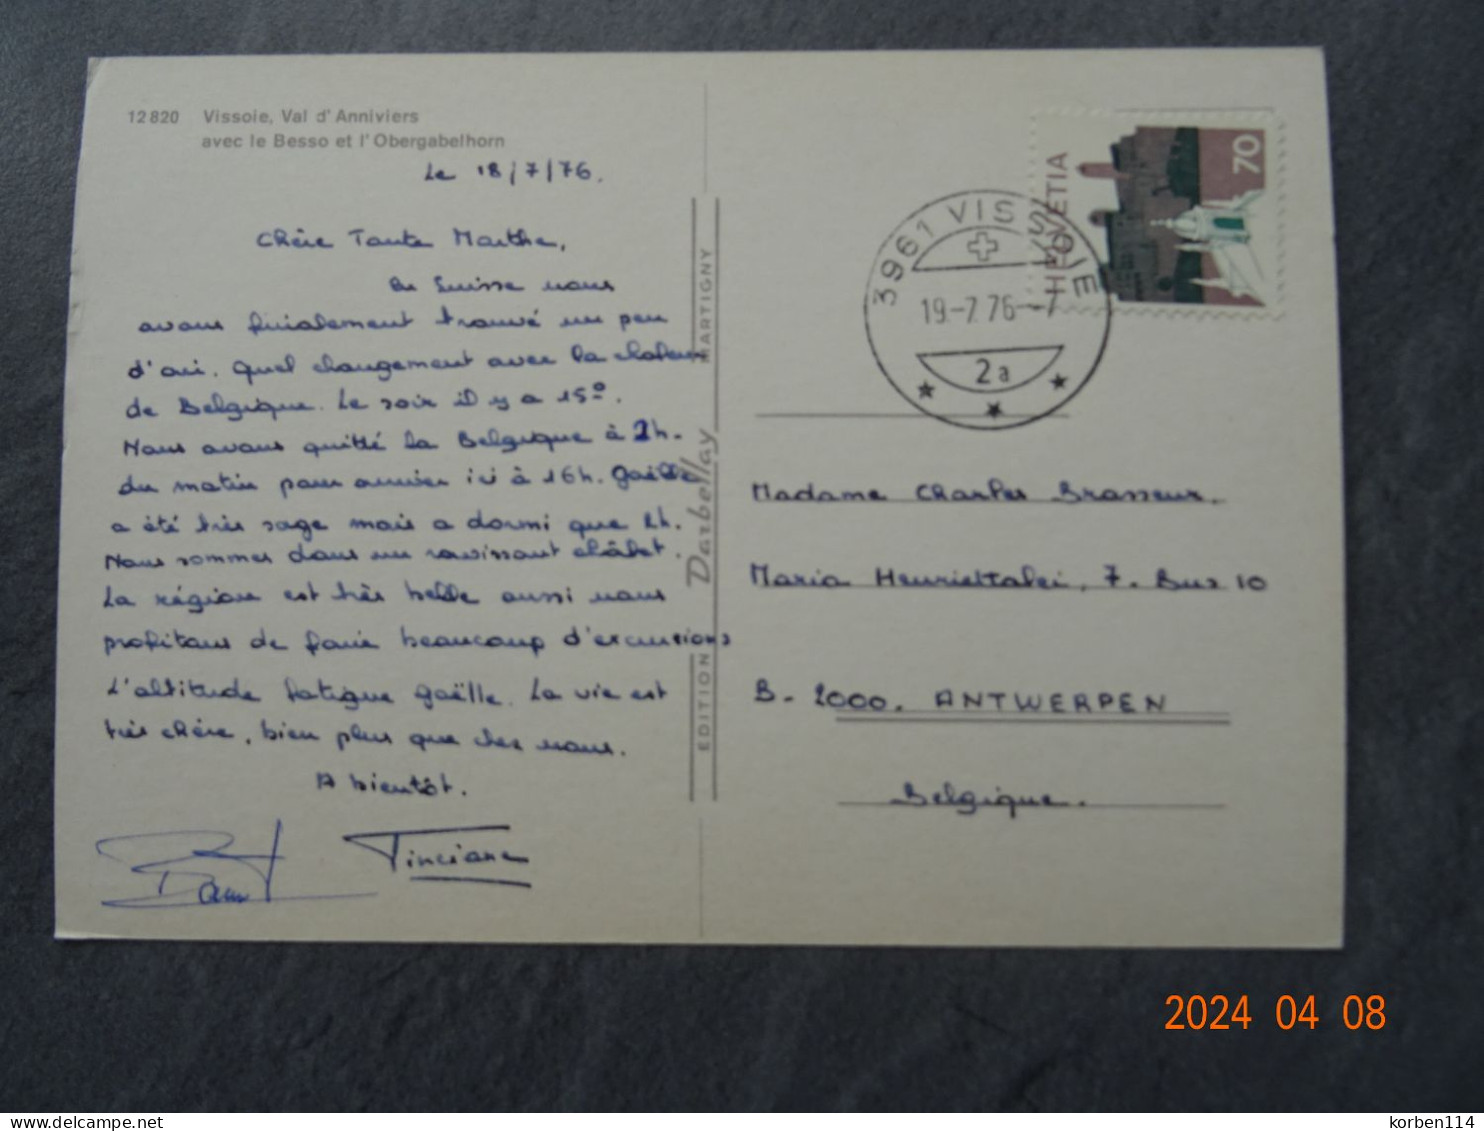 12820 Vissoie, Val d'Anniviers
avec le Besso et l'Obergabelhorn
Le 18/7/76.
Chère Tante Marthe,
En Suisse nous
avons finalement trouvé un peu
d'air. Quel changement avec la chaleur
de Belgique. Le soir il y a 15°.
Nous avons quitté la Belgique à 2h.
du matin pour arriver ici à 16h. Gaëlle
a été très sage mais a dormi que 2h.
Nous sommes dans un ravissant châlet.
La région est très belle aussi nous
profitons de faire beaucoup d'excursions
L'altitude fatigue Gaëlle. La vie est
très chère, bien plus que chez nous.
A bientôt.
EDITION Darbellay MARTIGNY
HELVETIA
70
3961 VISSOIE
19-7.76--7
2a
Madame Charles Brasseur.
Maria Henriettalei, 7. Bus 10
B- 2000. ANTWERPEN
Belgique.
2024 04 08
korben114